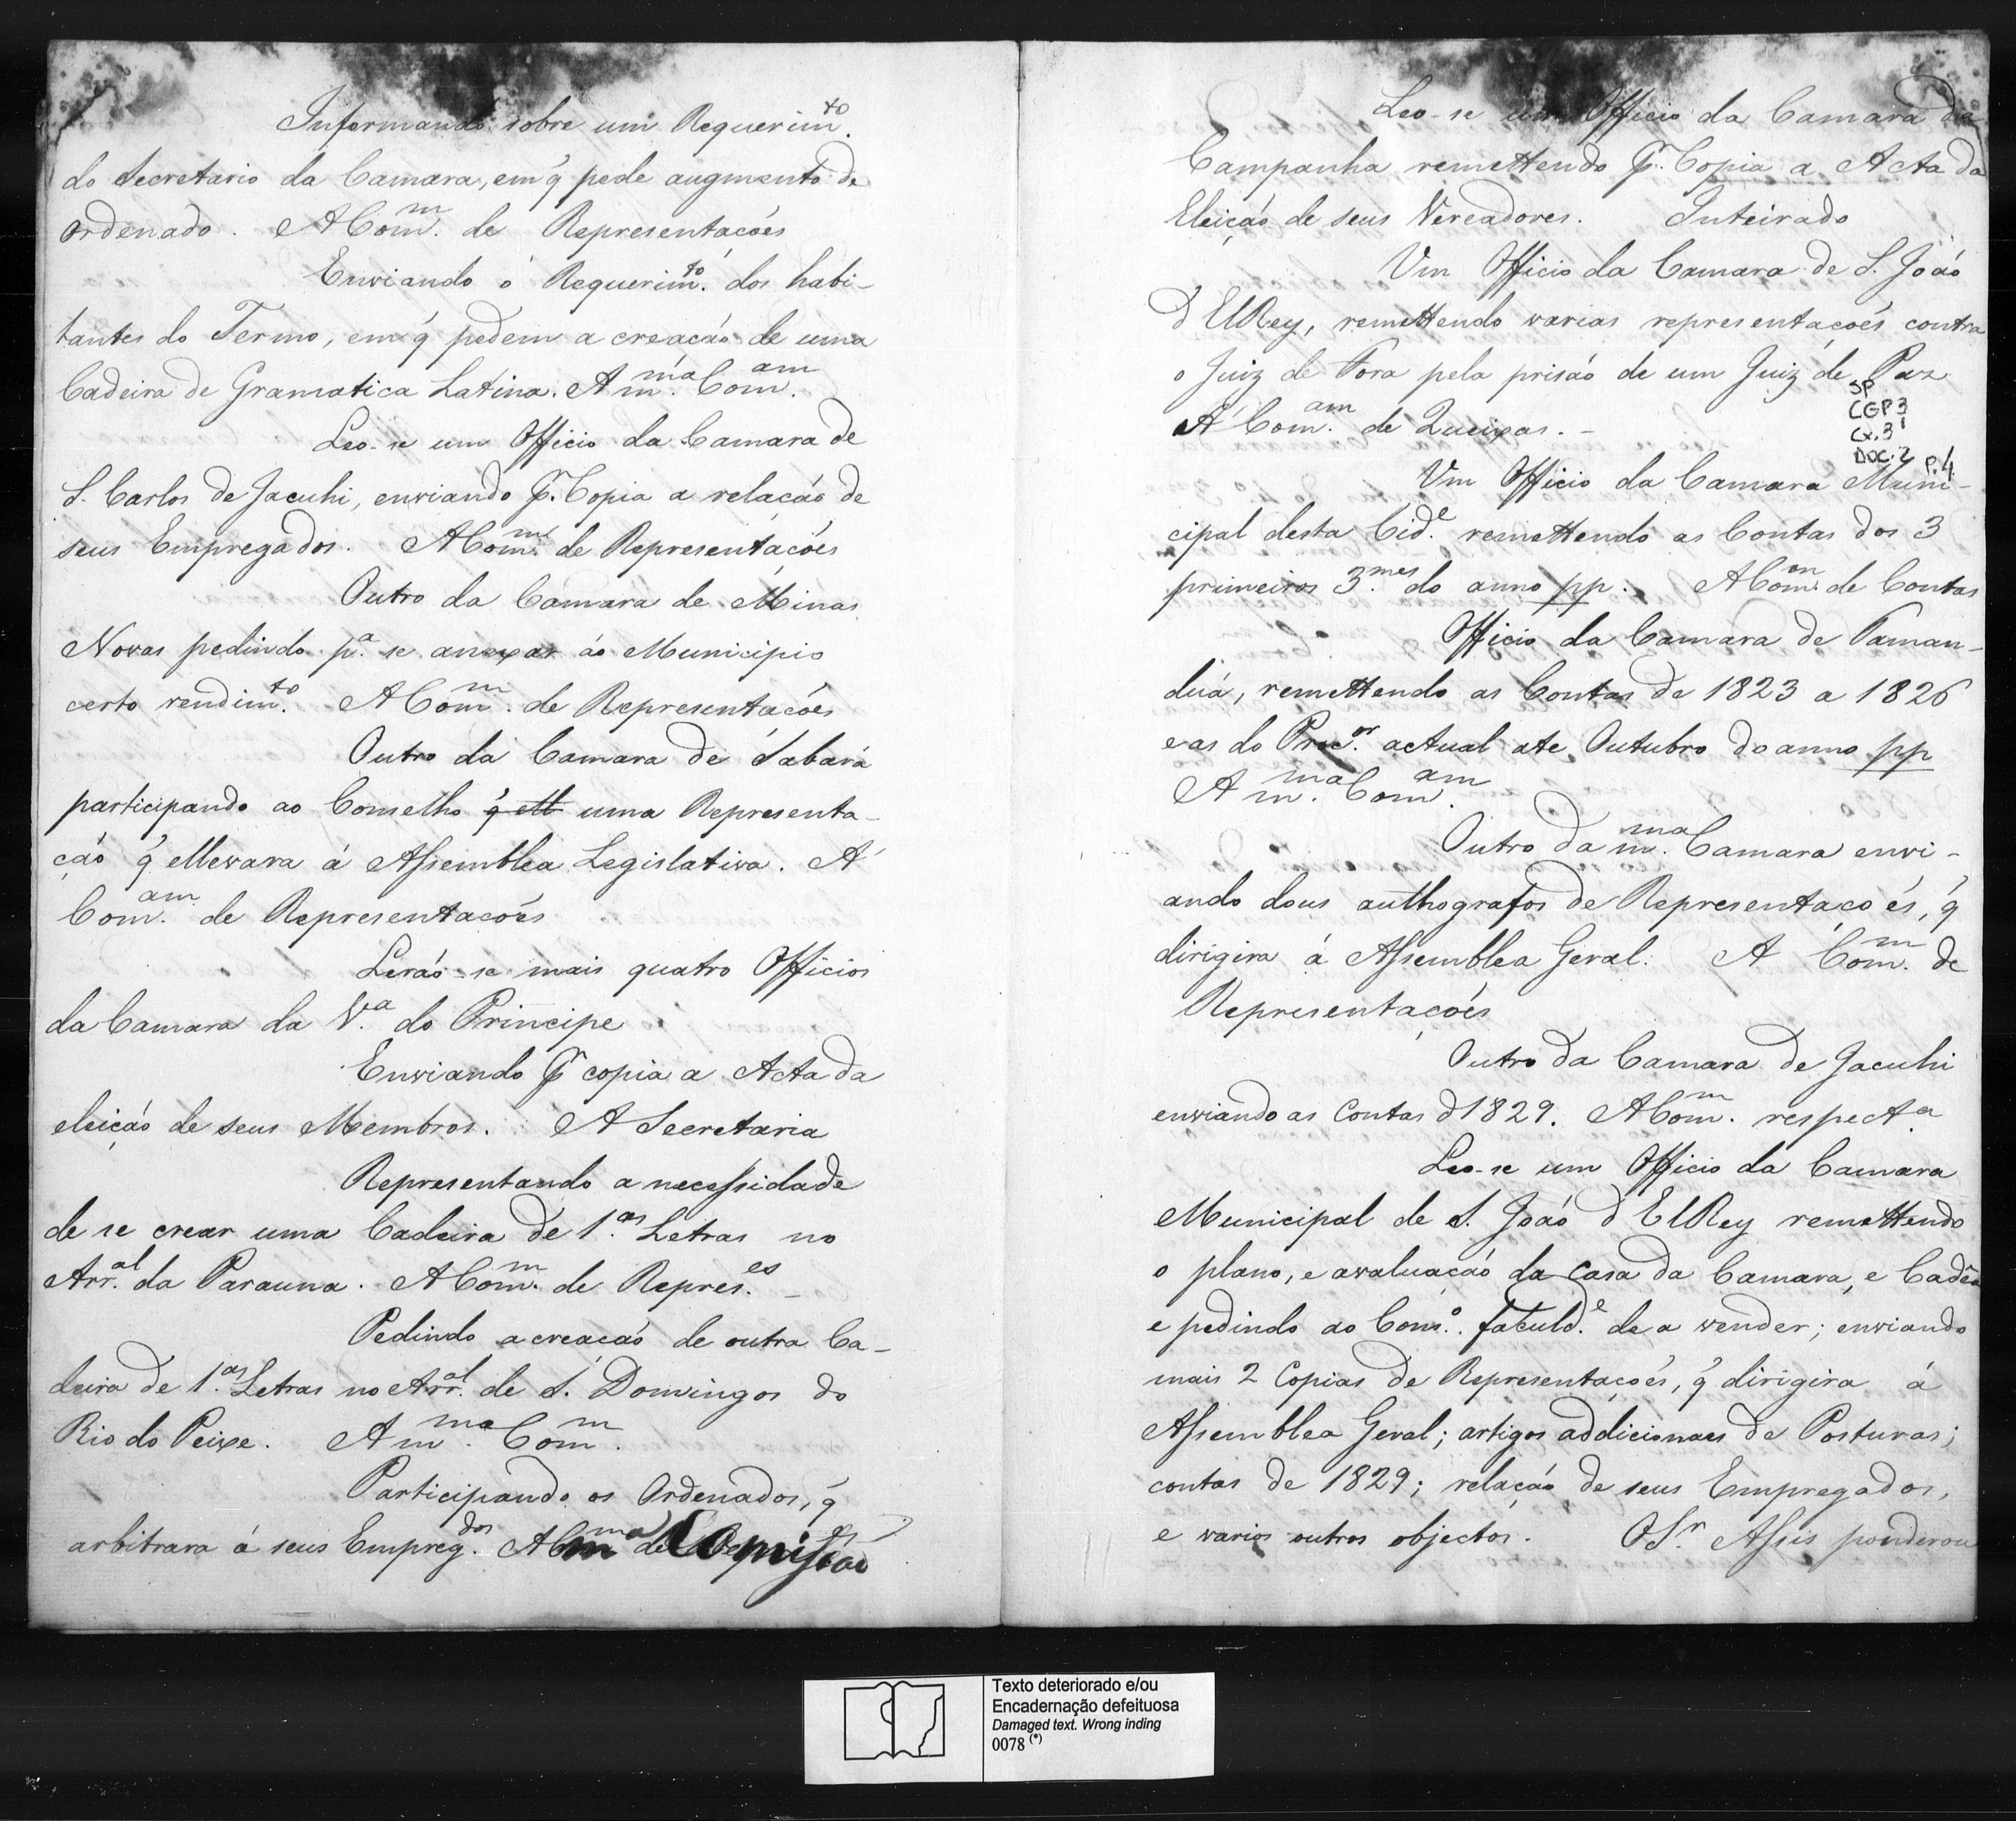 Informando sobre um Requerim.to
do Secretario da Camara, em q̃ pede augmento de
ordenado. A Com.m de Representaçoẽs
Enviando o Requerim.to dos habi-
tantes do Termo, em q̃ pedem a creaçaõ de uma
Cadeira de Gramatica Latina. A m.ma Com.am
Leo-se um Officio da Camara de
S. Carlos de Jacuhi, enviando p.r Copia a relaçaõ de
seus Empregados. A Com.m de Representaçoẽs
Outro da Camara de Minas
Novas pedindo p.a se anexar ao Municipio
certo rendim.to A Com.m de Representaçoẽs
Outro da Camara de Sabará
participando ao Conselho q̃ ell uma Representa-
çaõ q̃ ellevara á Assemblea Legislativa. Á
Com.am de Representaçoẽs
Leraõ-se mais quatro Officios
da Camara da V.a do Principe
Enviando p.r copia a Acta da
eleiçaõ de seus Membros. A Secretaria
Representando a necessidade
de se crear uma Cadeira de 1.as Letras no
Arr.al da Parauna. A Com.m de Repres.es
Pedindo a creaçaõ de outra Ca-
deira de 1.as Letras no Arr.al de S. Domingos do
Rio do Peixe. A m.ma Com.m
Participando os Ordenados, q̃
arbitrara á seus Empreg.dos A m.ma Comissaõ
Leo-se um Officio da Camara da
Campanha remettendo p.r Copia a Acta da
Eleiçaõ de seus Vereadores. Inteirado
Um Officio da Camara de S. Joaõ
d'ElRey, remettendo varias representaçoẽs contra
o Juiz de Fora pela prisaõ de um Juiz de Paz
Á Com.am de Queixas.-
SP
CGP3
Cx.3
DOC.2 P.4
Um Officio da Camara Muni-
cipal desta Cid.e remettendo as Contas dos 3
primeiros 3.mes do anno pp. A Com.m de Contas
Officio da Camara de Taman-
duá, remettendo as Contas de 1823 a 1826
e as do Proc.or actual ate Outubro do anno pp
A m.ma Com.am
Outro da m.ma Camara envi-
ando dous authografos de Representaçoẽs, q̃
dirigira á Assemblea Geral. A Com.m de
Representaçoẽs
Outro da Camara de Jacuhi
enviando as Contas d 1829. A Com.m respect.a
Leo-se um Officio da Camara
Municipal de S. Joaõ d'ElRey remettendo
o plano, e avaluaçaõ da Casa da Camara, e Cadêa
e pedindo ao Cons.o faculd.e de a vender; enviando
mais 2 Copias de Representaçoẽs, q̃ dirigira á
Assemblea Geral; artigos addicionaes de Posturas;
contas de 1829; relaçaõ de seus Empregados,
e varios outros objectos. O S.r Assis ponderou
Texto deteriorado e/ou
Encadernação defeituosa
Damaged text. Wrong inding
0078 (*)